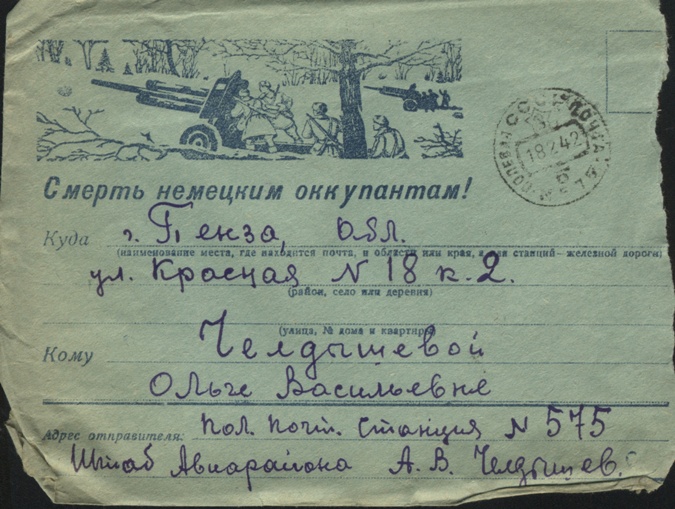 СССР ПОЛЕВАЯ ПОЧТА
18 2 42
575
Смерть немецким оккупантам!
Куда г. Пенза, Обл.
(наименование места, где находится почта, и области или края, а для станций - железной дороги)
ул. Красная N 18 к. 2.
(район, село или деревня)
(улица, № дома и квартиры)
Кому Челдышевой
Ольге Васильевне
Адрес отправителя: Пол. Почт. Станция N 575
Штаб Авиарайона А. В. Челдышев.